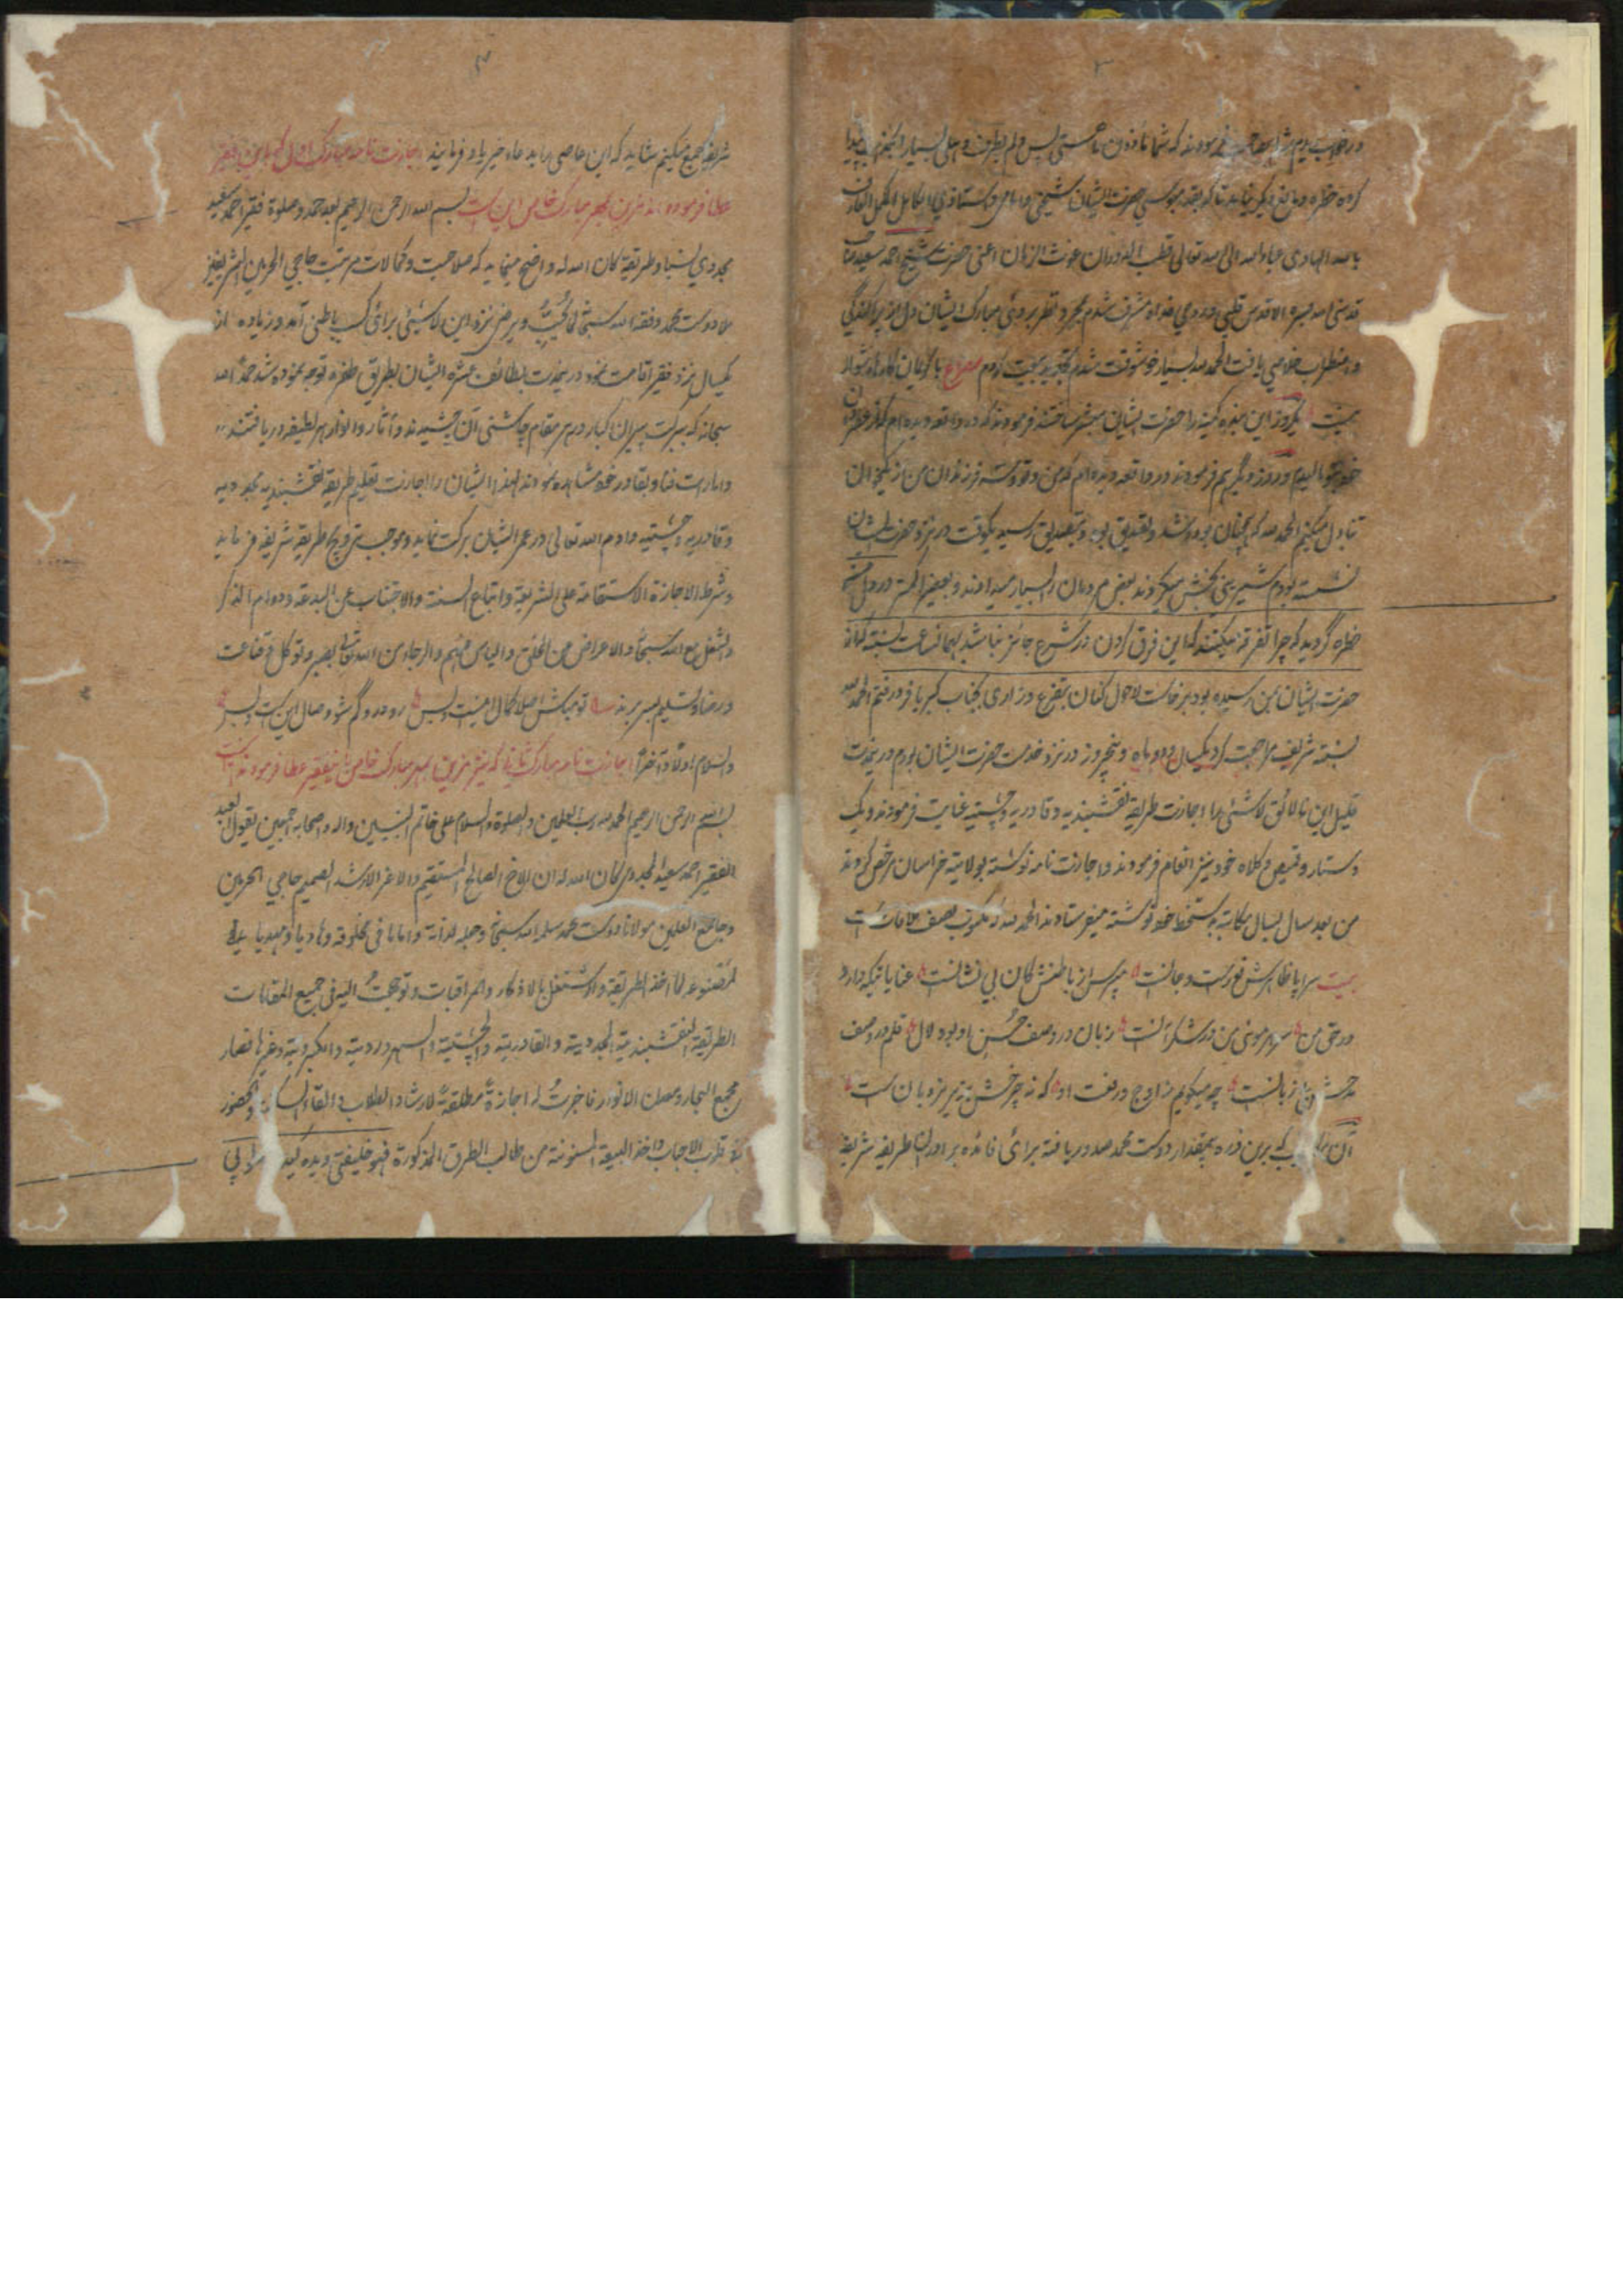 ۳
کرده خطره و مانع دیگر نیامد تا که بقدمبوسی حضرت ایشان شیخی و امامی و استاذی الکامل المکمل العارف
بالله الهادی عباد الله الی الله تعالی قطب الدوران غوث الزمان اعنی حضرت شیخ احمد سعید صاحب
قدسنی الله بسره الاقدس قلبی و روحی فداه مشرف شدم بمجرد نظر بر روئی مبارک ایشان دل از پراکندگی
و اضطراب خلاصی یافت الحمد لله بسیار خوشوقت شدم تجدید بیعت کردم مصراع با کریمان کارها دشوار
نیست یکروز این بنده کمینه را حضرت ایشان مبشر ساختند فرمودند که در واقعه دیده‌ام که
روز دیگر هم فرمودند در واقعه دیده‌ام که من و تو و سه فرزندان من از یکجا نان
تناول میکنیم الحمد لله که یکوقت در نزد حضرت ایشان
نشسته بودم شیرینی بخش میکردند بعض مردمان را بسیار میدادند و بعضی را کمتر در دل من
خطره گردید که چرا تفرقه میکنند که این فرق کردن در شرع جائز نباشد بهمان ساعت نسبة که از
حضرت ایشان بمن رسیده بود برخاست لاحول کنان بتضرع و زاری بجناب کبریا فرو رفتم الحمد لله
نسبة شریف مراجعت کرد یکسال و دو ماه و پنجروز در نزد خدمت حضرت ایشان بودم درینمدت
قلیل این نالائق لاشئی را اجازت طریقه نقشبندیه و قادریه و چشتیه عنایت فرمودند و یک
دستار و قمیص و کلاه خود نیز انعام فرمودند و اجازت نامه نوشته بولایته خراسان مرخص کردند
من بعد سال بسال مکاتبه بدستخط خود نوشته میفرستادند الحمد لله که مکتوب نصف ملاقات است
بیت سراپا ظاهرش نورست و جانست مپرس از باطنش کان بی نشانست عنایاتیکه دارد
در حق من سر هر موئی من در شکر آنست زبان در وصف حسن او بود لال قلم در وصف
چه میگویم ز اوج رفعت او که نه چرخش به زیر نردبان ست
برین ذره بیمقدار دوست محمد صدور یافته برائی فائده برادران طریقه شریفه
۴
شریفه جمع میکنیم شاید که این عاصی را بدعاء خیر یاد فرمایند اجازت نامه مبارک اول که باین فقیر
عطا فرموده‌اند مزین بمهر مبارک خاص این ست بسم الله الرحمن الرحیم بعد حمد و صلوة فقیر احمد سعید
مجددی نسبا و طریقة کان الله له واضح مینماید که صلاحیت و کمالات مرتبت حاجی الحرمین الشریفین
ملا دوست محمد وفقه الله سبحانه لما یحب و یرضی نزد این لاشیئی برائی کسب باطنی آمد و زیاده از
یکسال نزد فقیر اقامت نمود درینمدت بلطائف عشره ایشان بطریق طفره توجه نموده شد حمدا لله
سبحانه که ببرکت پیران کبار در هر مقام چاشنی آن چشیدند و آثار و انوار هر لطیفه دریافتند
و امارات فنا و بقا در خود مشاهده نمودند لهذا ایشان را اجازت تعلیم طریقه نقشبندیه مجددیه
و قادریه و چشتیه دادم الله تعالی در عمر ایشان برکت نماید و موجب ترویج طریقه شریفه فرماید
و شرط الاجازة الاستقامة علی الشریعة و اتباع السنة و الاجتناب عن البدعة و دوام الذکر
و الشغل مع الله سبحانه و الاعراض عن الخلق و الیاس منهم و الرجاء من الله تعالی بصبر و توکل و قناعت
و رضا و تسلیم بسر برند تو مباش اصلا کمال اینست و بس رو درو گم شو وصال این ست و بس
والسلام اولا و آخرا اجازت نامه مبارک ثانیا که نیز مزین بمهر مبارک خاص باینفقیر عطا فرمودند اینست
بسم الله الرحمن الرحیم الحمد لله رب العلمین والصلوة والسلام علی خاتم النبیین واله واصحابه اجمعین یقول العبد
الفقیر احمد سعید المجددی کان الله له ان الاخ الصالح المستقیم والاعز الارشد الصمیم حاجی الحرمین
وجامع العلمین مولانا دوست محمد سلمه الله سبحانه وجعله لذاته واماما فی مخلوقه وهادیا ومهدیا
لما اخذ الطریقة واشتغل بالاذکار والمراقبات وتوجهت الیه فی جمیع المقامات
الطریقة النقشبندیة المجددیة والقادریة والچشتیة والسهروردیة والکبرویة وغیرها فصار
مجمع البحار ومعدن الانوار فاجزت له اجازة مطلقة لارشاد الطلاب والقاء السکینة والحضور
فی قلوب الاحباب واخذ البیعة المسنونة من طالب الطرق المذکورة فهو خلیفتی ویده کیدی